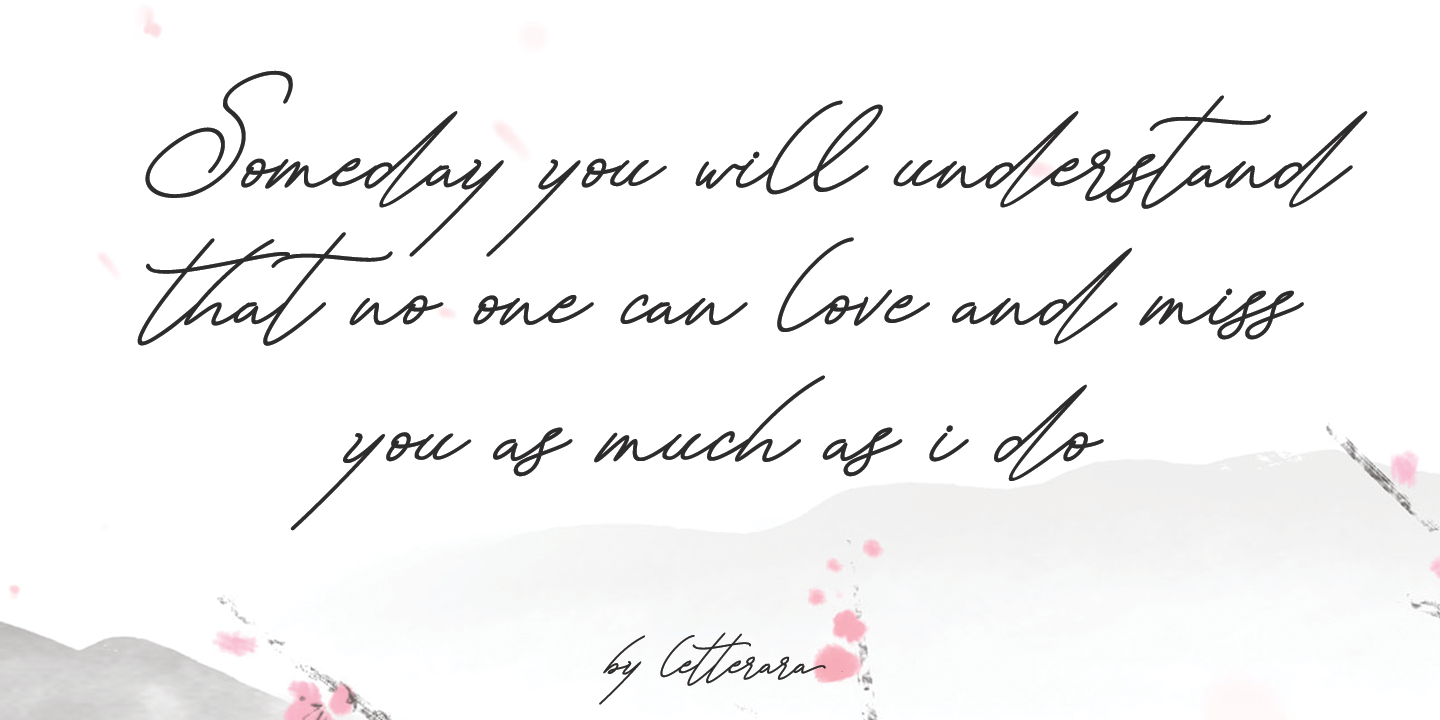 Someday you will understand
that no one can love and miss
you as much as i do
by letterara